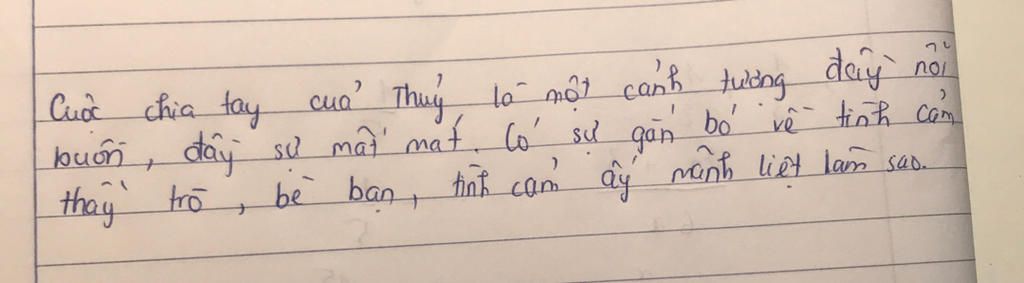 Cuộc chia tay của Thuỷ là một cảnh tượng đầy nỗi
buồn, đầy sự mất mát. Có sự gắn bó về tình cảm
thầy trò, bè bạn, tình cảm ấy mãnh liệt làm sao.